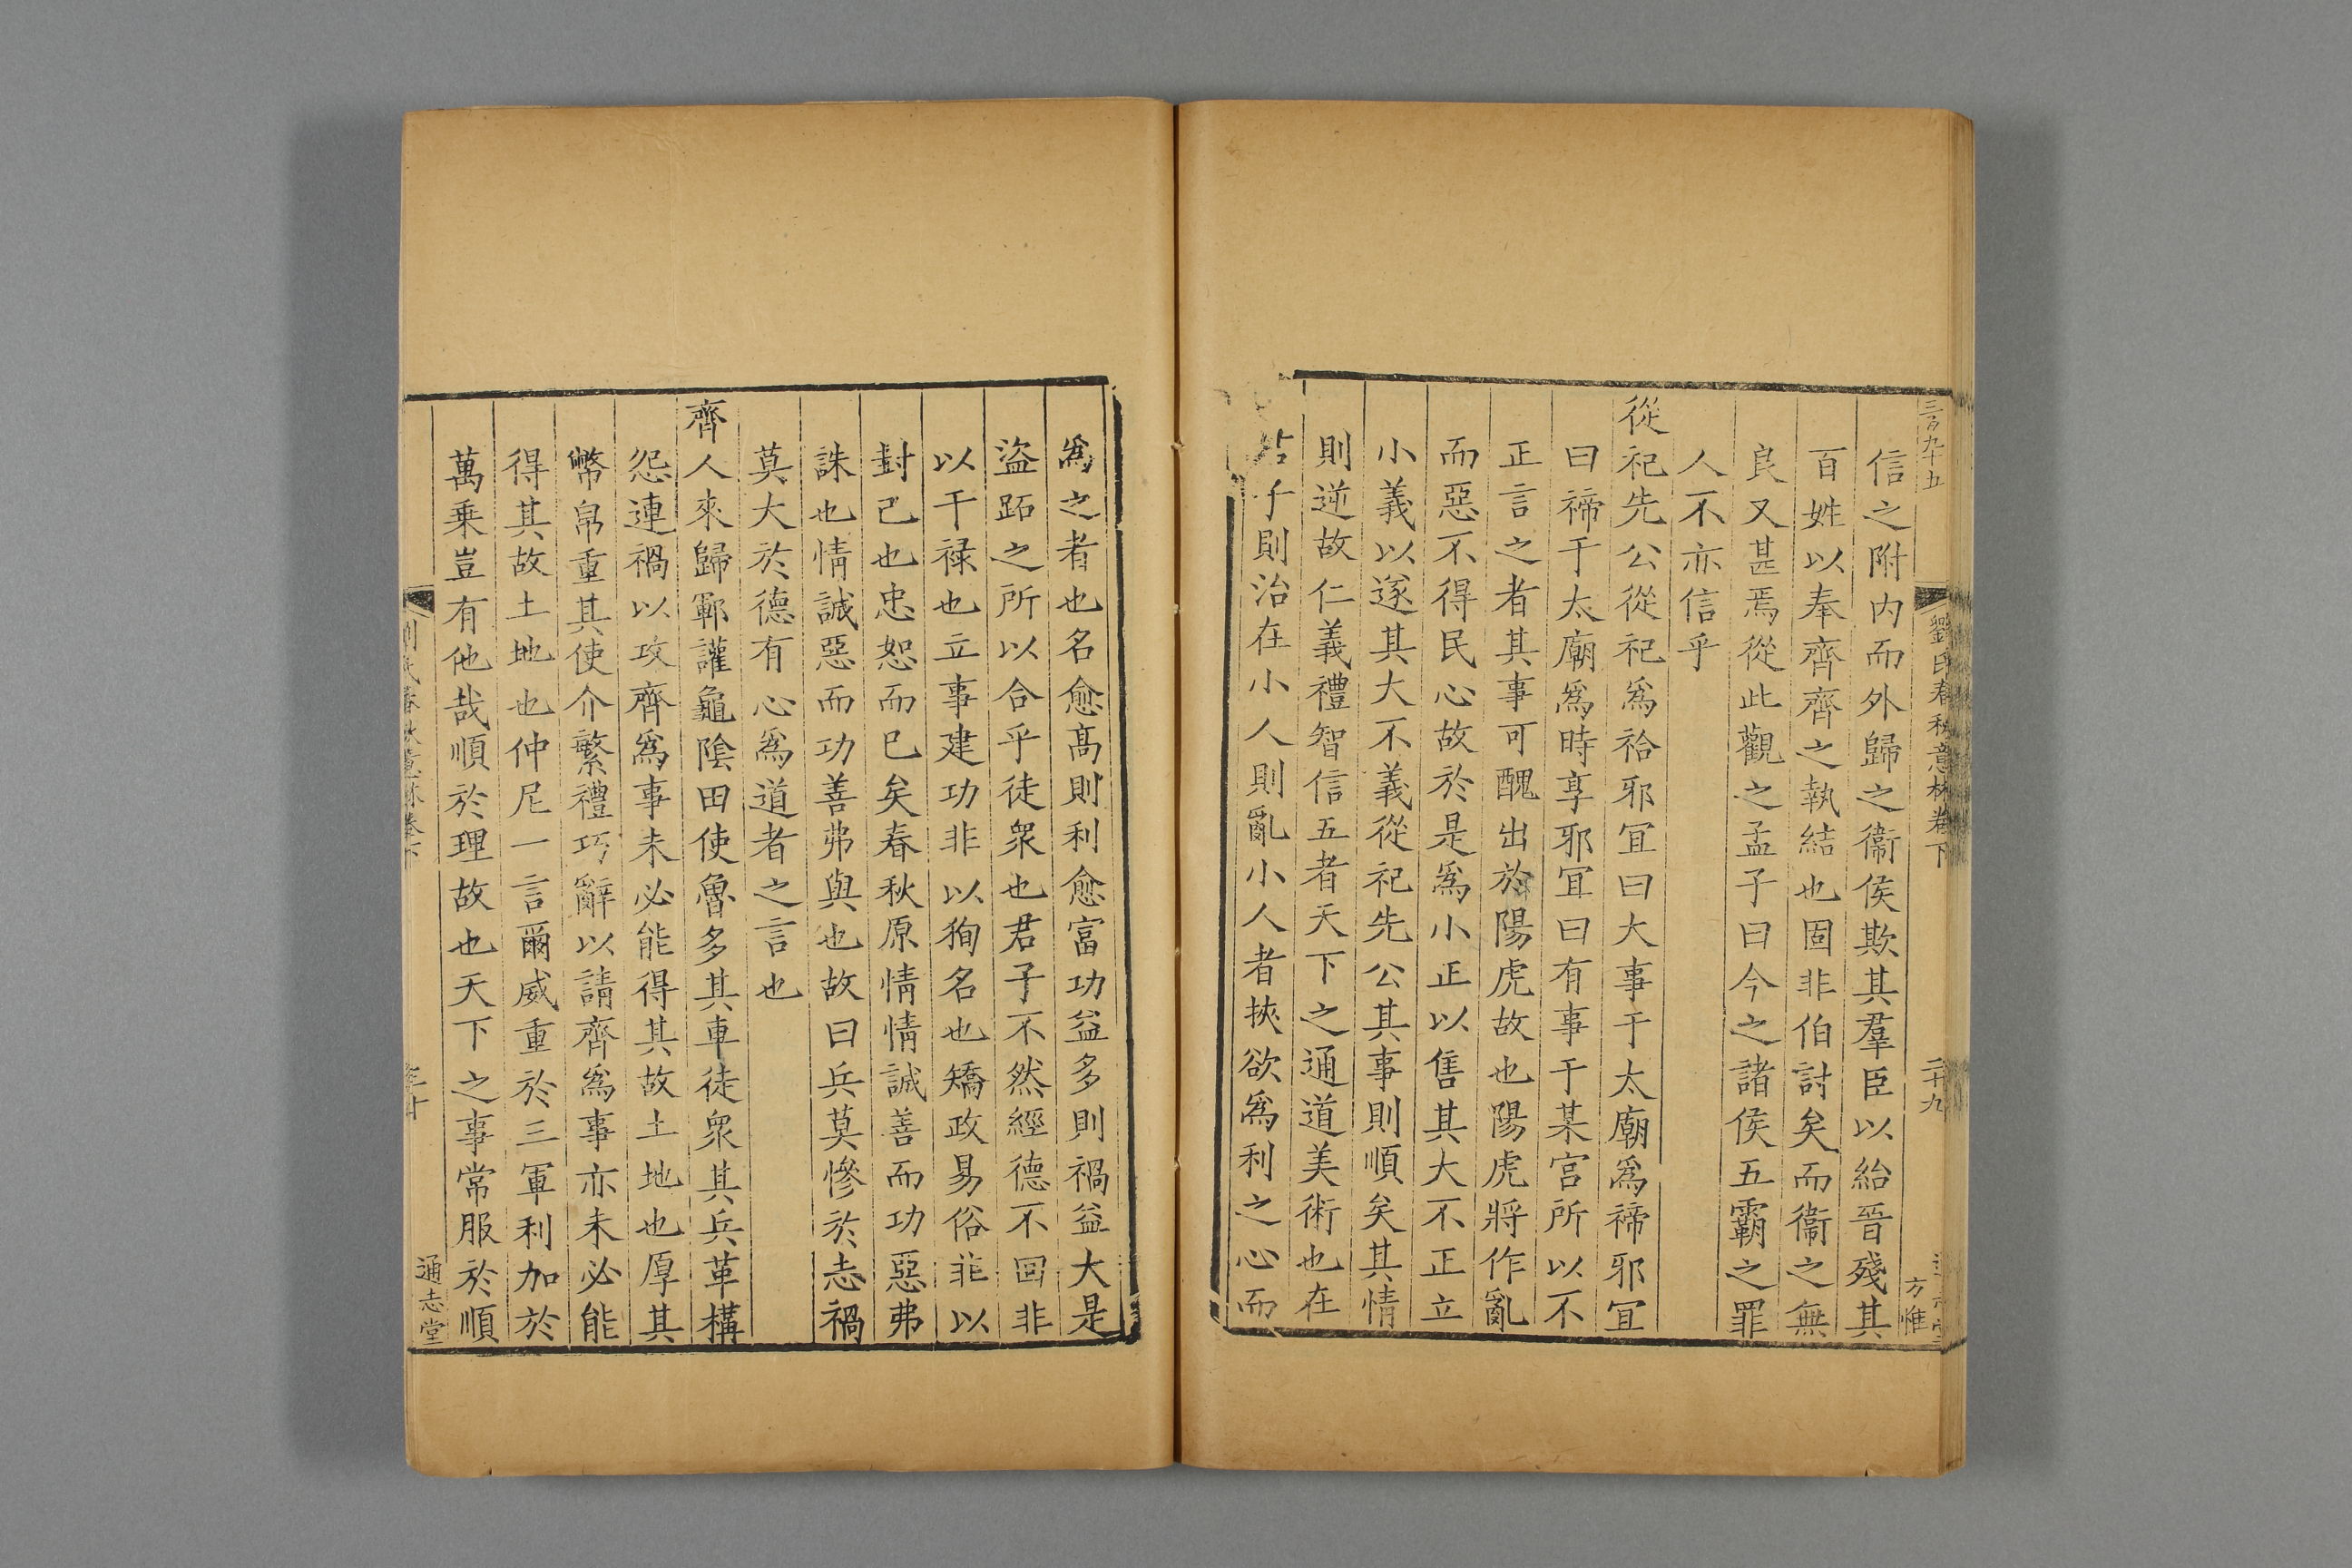 三百九十五
劉氏春秋意林卷下
二十九
方惟
信之附内而外歸之衞侯欺其羣臣以紿晉殘其
百姓以奉齊齊之執結也固非伯討矣而衞之無
良又甚焉從此觀之孟子曰今之諸侯五霸之罪
人不亦信乎
從祀先公從祀爲祫邪冝曰大事于太廟爲禘邪冝
曰禘于太廟爲時享邪冝曰有事于某宫所以不
正言之者其事可醜出於陽虎故也陽虎將作亂
而惡不得民心故於是爲小正以售其大不正立
小義以遂其大不義從祀先公其事則順矣其情
則逆故仁義禮智信五者天下之通道美術也在
子則治在小人則亂小人者挾欲爲利之心而
爲之者也名愈髙則利愈富功益多則禍益大是
盜跖之所以合乎徒衆也君子不然經德不回非
以干禄也立事建功非以狥名也矯政易俗非以
封己也忠恕而已矣春秋原情情誠善而功惡弗
誅也情誠惡而功善弗與也故曰兵莫慘於志禍
莫大於德有心爲道者之言也
齊人來歸鄆讙龜隂田使魯多其車徒衆其兵革構
怨連禍以攻齊爲事未必能得其故土地也厚其
幣帛重其使介繁禮巧辭以請齊爲事亦未必能
得其故土地也仲尼一言爾威重於三軍利加於
萬乗豈有他哉順於理故也天下之事常服於順
劉氏春秋意林卷下
三十
通志堂